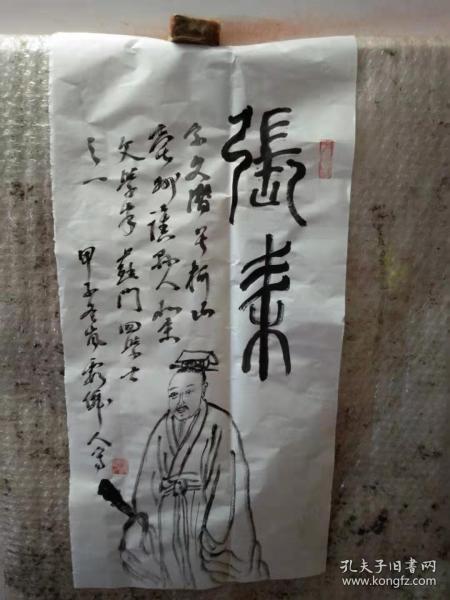 張耒
字文潛号柯山
亳州譙县人北宋
文学家蘇門四学士
之一
甲子冬人写
孔夫子旧书网
www.kongfz.com